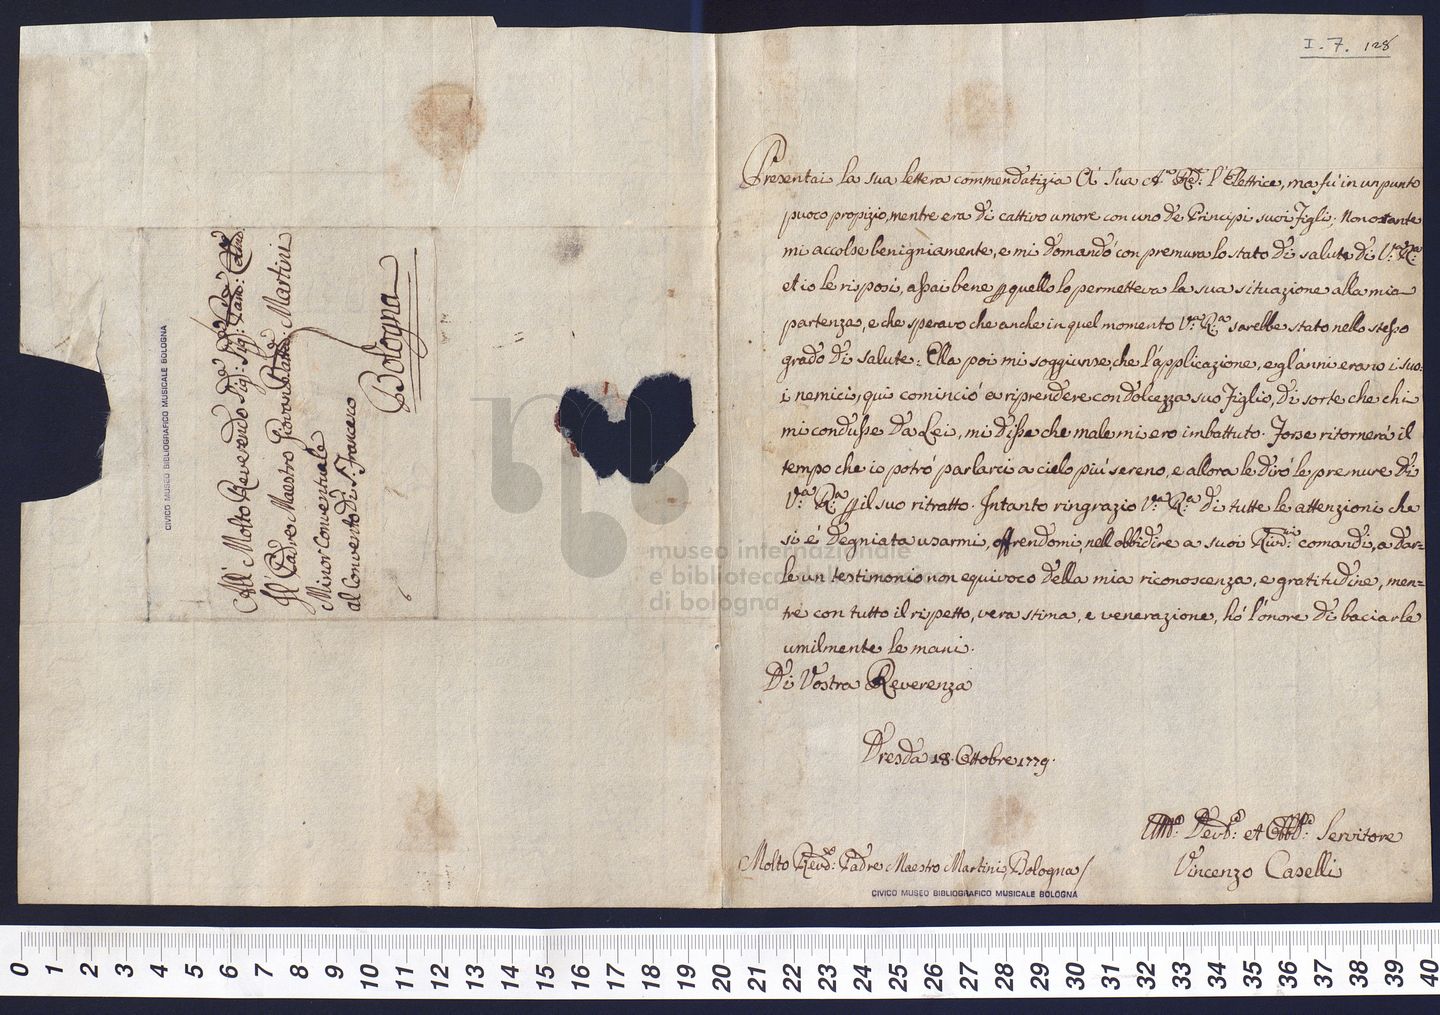 I. 7. 128
Presentai la sua lettera commendatizia à Sua A. R. l'Elettrice, ma fù in un punto
puoco propizio, mentre era di cattivo umore con uno de Principi suoi Figli; Nonostante
mi accolse benigniamente, e mi domandò con premura lo stato di salute di V.ra R.a
et io le risposi, assai bene p quello lo permetteva la sua situazione alla mia
partenza, e che speravo che anche in quel momento V.ra R.a sarebbe stato nello stesso
grado di salute: Ella poi mi soggiunse, che l'applicazione, e gl'anni erano i suo-
i nemici, qui cominciò a riprendere con dolcezza suo Figlio, di sorte che chi
mi condusse da Lei, mi disse che male mi ero imbattuto. Forse ritornerà il
tempo che io potrò parlarci a cielo più sereno, e allora le dirò le premure di
V.ra R.a p il suo ritratto. Intanto ringrazio V.ra R.a di tutte le attenzioni che
si è degniata usarmi, offrendomi, nell obbidire a suoi Riv.mi comandi, a dar-
le un testimonio non equivoco della mia riconoscenza, e gratitudine, men=
tre con tutto il rispetto, vera stima, e venerazione, hò l'onore di baciarle
umilmente le mani.
Di Vostra Reverenza
Dresda 18. Ottobre 1779.
Dev.o et Obb.o Servitore
Vincenzo Caselli
Molto Rev.do Padre Maestro Martini Bologna /
CIVICO MUSEO BIBLIOGRAFICO MUSICALE BOLOGNA
CIVICO MUSEO BIBLIOGRAFICO MUSICALE BOLOGNA
All' Molto Reverendo Sig: Sig:
Il Padre Maestro Giovan Martini
Minor Conventuale
al Convento di S. Francesco
Bologna
6
museo internazionale
e biblioteca della musica
di bologna
0 1 2 3 4 5 6 7 8 9 10 11 12 13 14 15 16 17 18 19 20 21 22 23 24 25 26 27 28 29 30 31 32 33 34 35 36 37 38 39 40